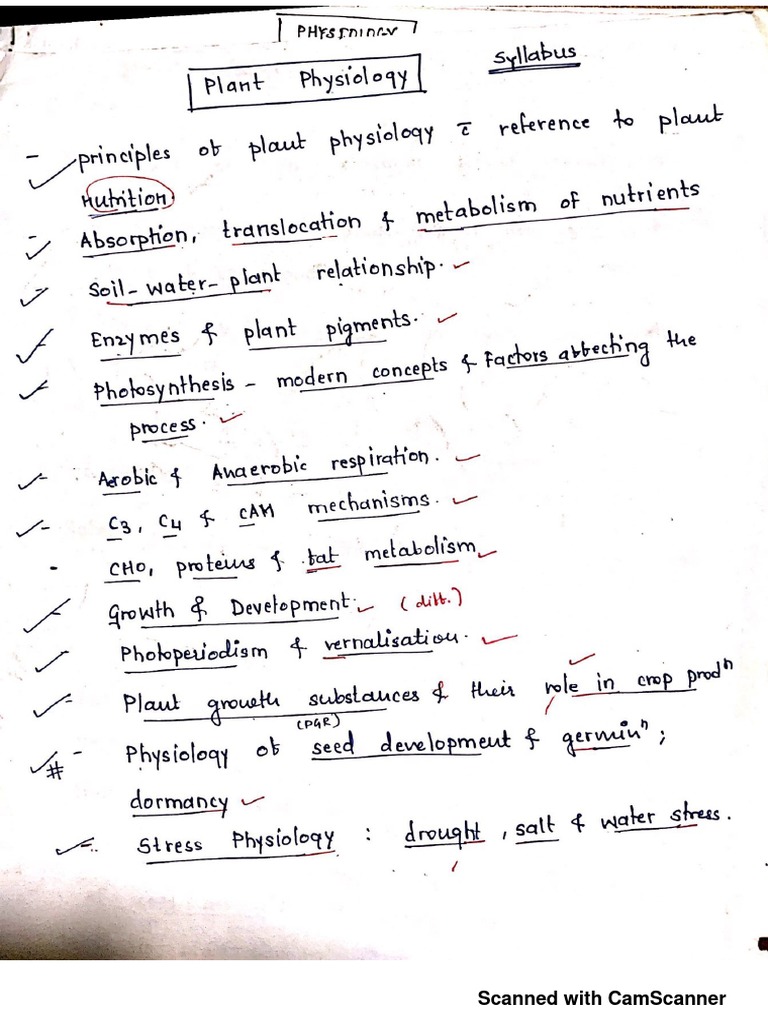 PHYSIOLOGY
Plant Physiology
Syllabus
- principles of plant physiology c̄ reference to plant
Nutrition
- Absorption, translocation & metabolism of nutrients
- Soil-water-plant relationship.
- Enzymes & plant pigments.
- Photosynthesis - modern concepts & Factors affecting the
process.
- Aerobic & Anaerobic respiration.
- C3, C4 & CAM mechanisms.
- CHO, proteins & fat metabolism
- Growth & Development. (diff.)
- Photoperiodism & vernalisation.
- Plant growth substances & their role in crop prodⁿ
(PGR)
# - Physiology of seed development & germinⁿ;
dormancy
- Stress Physiology : drought, salt & water stress.
Scanned with CamScanner